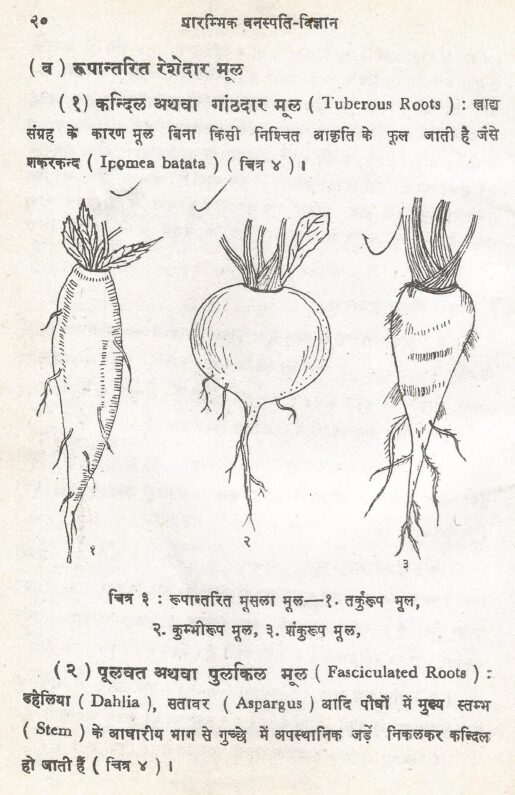 २०
प्रारम्भिक वनस्पति-विज्ञान
( ब ) रूपान्तरित रेशेदार मूल
( १ ) कन्दिल अथवा गांठदार मूल ( Tuberous Roots ) : खाद्य
संग्रह के कारण मूल बिना किसी निश्चित आकृति के फूल जाती है जैसे
शकरकन्द ( Ipomea batata ) ( चित्र ४ ) ।
१
२
३
चित्र ३ : रूपान्तरित मूसला मूल—१. तर्कुरूप मूल,
२. कुम्भीरूप मूल, ३. शंकुरूप मूल,
( २ ) पूलवत अथवा पुलकिल मूल ( Fasciculated Roots ) :
डहेलिया ( Dahlia ), सतावर ( Aspargus ) आदि पौधों में मुख्य स्तम्भ
( Stem ) के आधारीय भाग से गुच्छे में अपस्थानिक जड़ें निकलकर कन्दिल
हो जाती हैं ( चित्र ४ ) ।